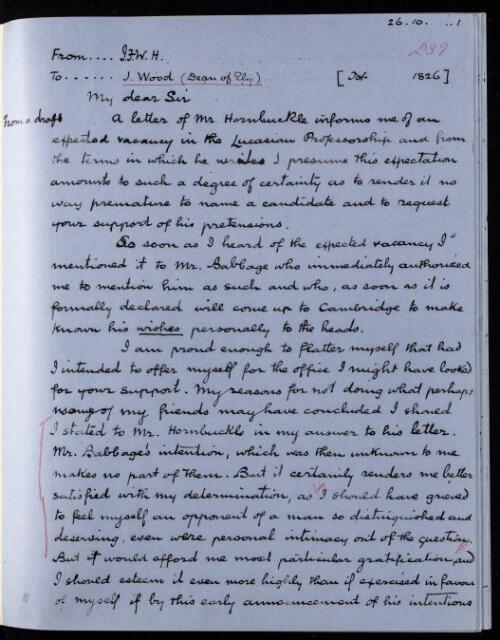 26.10. ..1
237
From.... J.F.W. H.
To...... J. Wood (Dean of Ely) [Oct 1826]
My dear Sir
From a draft A letter of Mr. Hornbuckle informs me of an
expected vacancy in the Lucasian Professorship and from
the terms in which he writes I presume this expectation
amounts to such a degree of certainty as to render it no
way premature to name a candidate and to request
your support of his pretensions.
So soon as I heard of the expected vacancy I
mentioned it to Mr. Babbage who immediately authorized
me to mention him as such and who, as soon as it is
formally declared will come up to Cambridge to make
known his wishes personally to the heads.
I am proud enough to flatter myself that had
I intended to offer myself for the office I might have looked
for your support. My reasons for not doing what perhaps
of my friends may have concluded I should
I stated to Mr. Hornbuckle in my answer to his letter.
Mr. Babbage's intention, which was then unknown to me
makes no part of them. But it certainly renders me better
satisfied with my determination, as I should have grieved
to feel myself an opponent of a man so distinguished and
deserving, even were personal intimacy out of the question.
But it would afford me most particular gratification and
I should esteem it even more highly than if exercised in favour
of myself if by this early announcement of his intentions